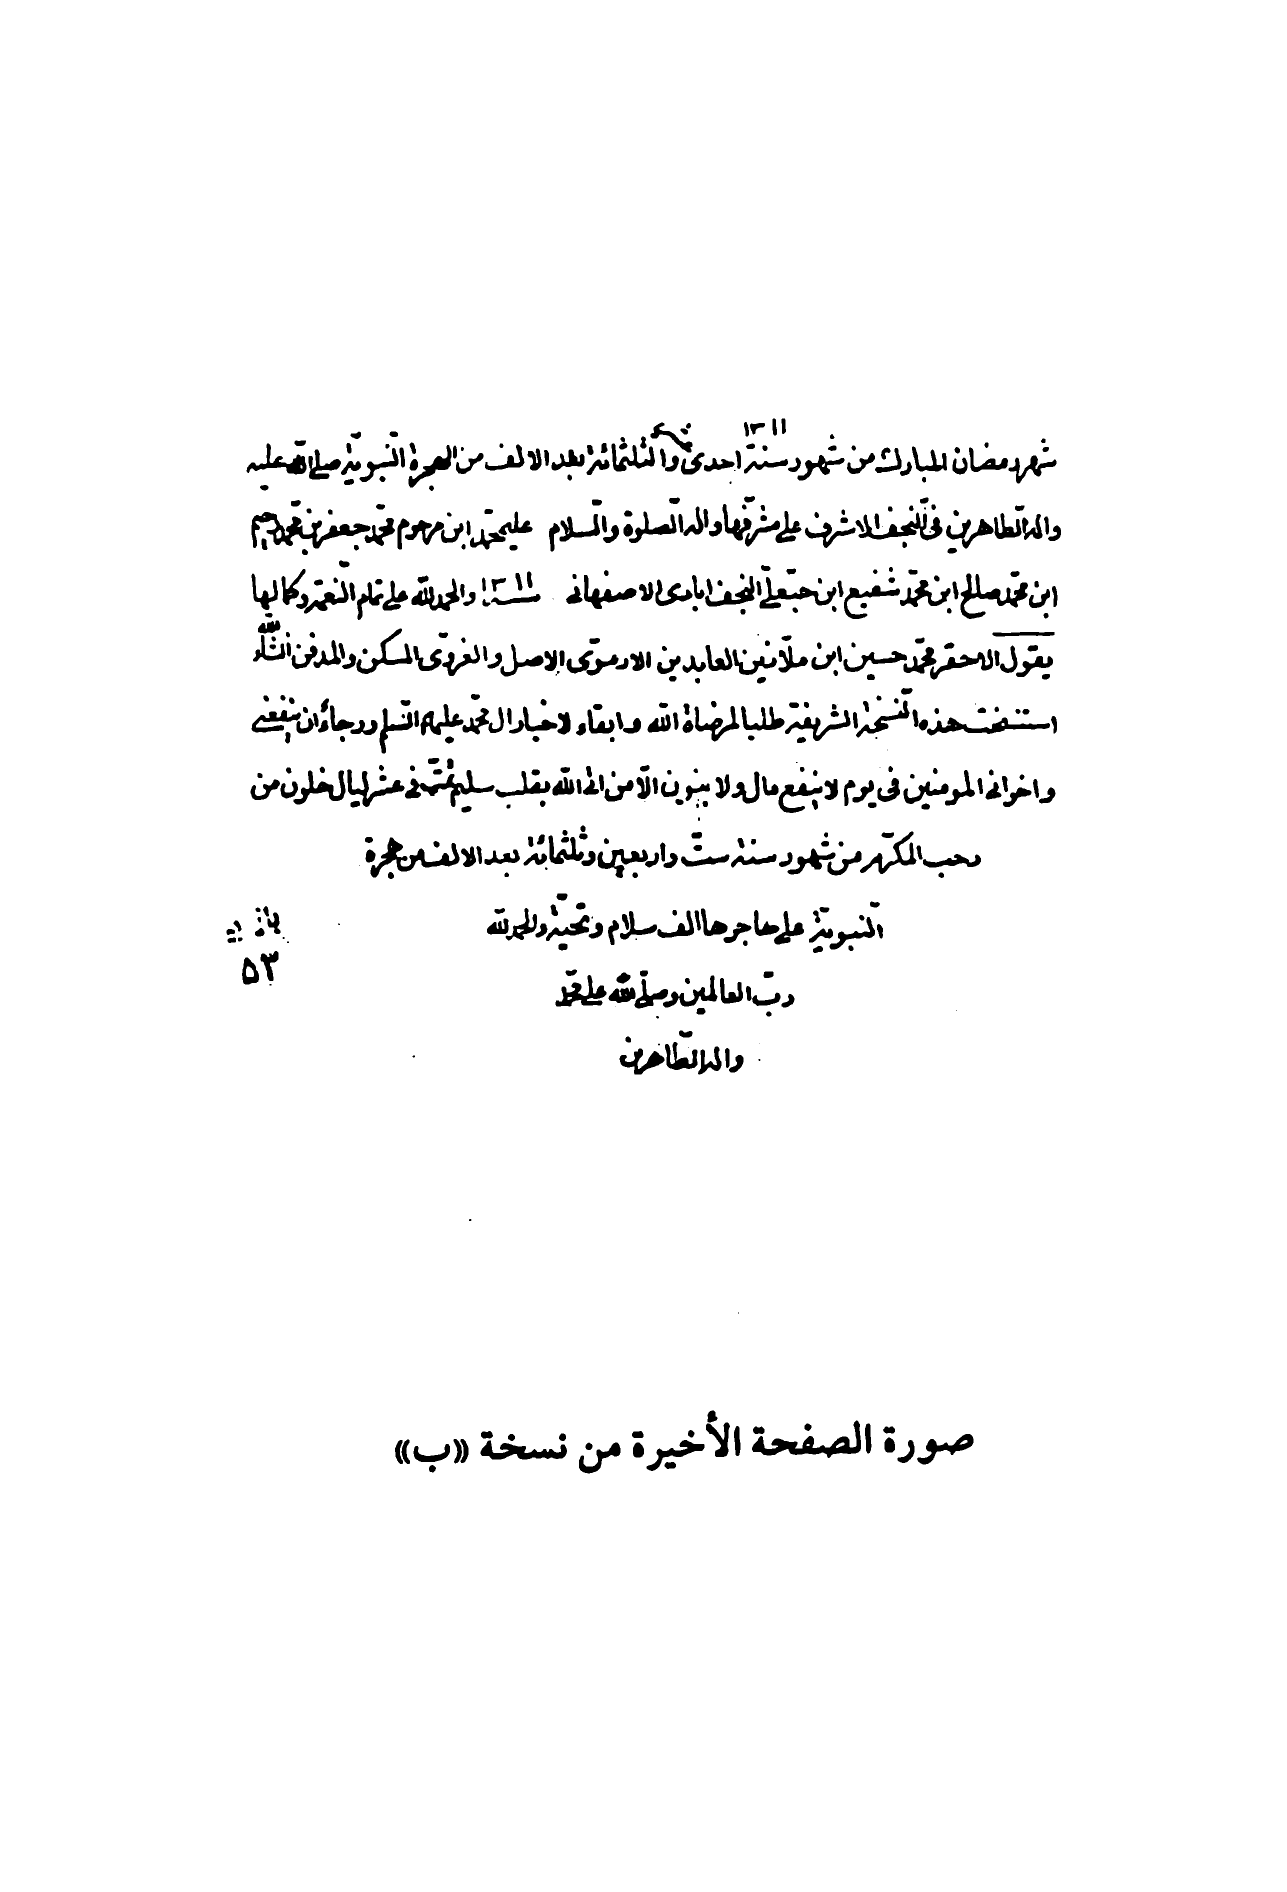 ١٣١١
شهر رمضان المبارك من شهور سنة احدى عشر والثلثمائة بعد الالف من الهجرة النبويّة صلى الله عليه
واله الطّاهرين في النجف الاشرف على مشرّفها واله الصّلوة والسّلام علیمحمّد ابن مرحوم محمّد جعفر بن محمّد رحيم
ابن محمّد صالح ابن محمّد شفيع ابن حبّعلي النجف ابادى الاصفهانى سنة ١٣١١ والحمد لله على تمام النّعمة وكمالها
يقول الاحقر محمّد حسين ابن ملّا زين العابدين الارموّى الاصل والغروّى المسكن والمدفن انشاء الله
استنسخت هذه النّسخة الشريفة طلبا لمرضاة الله وابقاء لاخبار ال محمّد عليهم السّلم ورجاء ان ينفعنى
واخوانى المومنين فى يوم لا ينفع مال ولا بنون الّا من اتى الله بقلب سليم تمّت فى عشر ليال خلون من
رجب المكرّم من شهور سنة ستّ واربعين وثلثمائة بعد الالف من هجرة
النّبويّة على هاجرها الف سلام وتحيّة والحمد لله
ربّ العالمين وصلّى الله على محمّد
واله الطّاهرين
٥٣
صورة الصفحة الأخيرة من نسخة «ب»